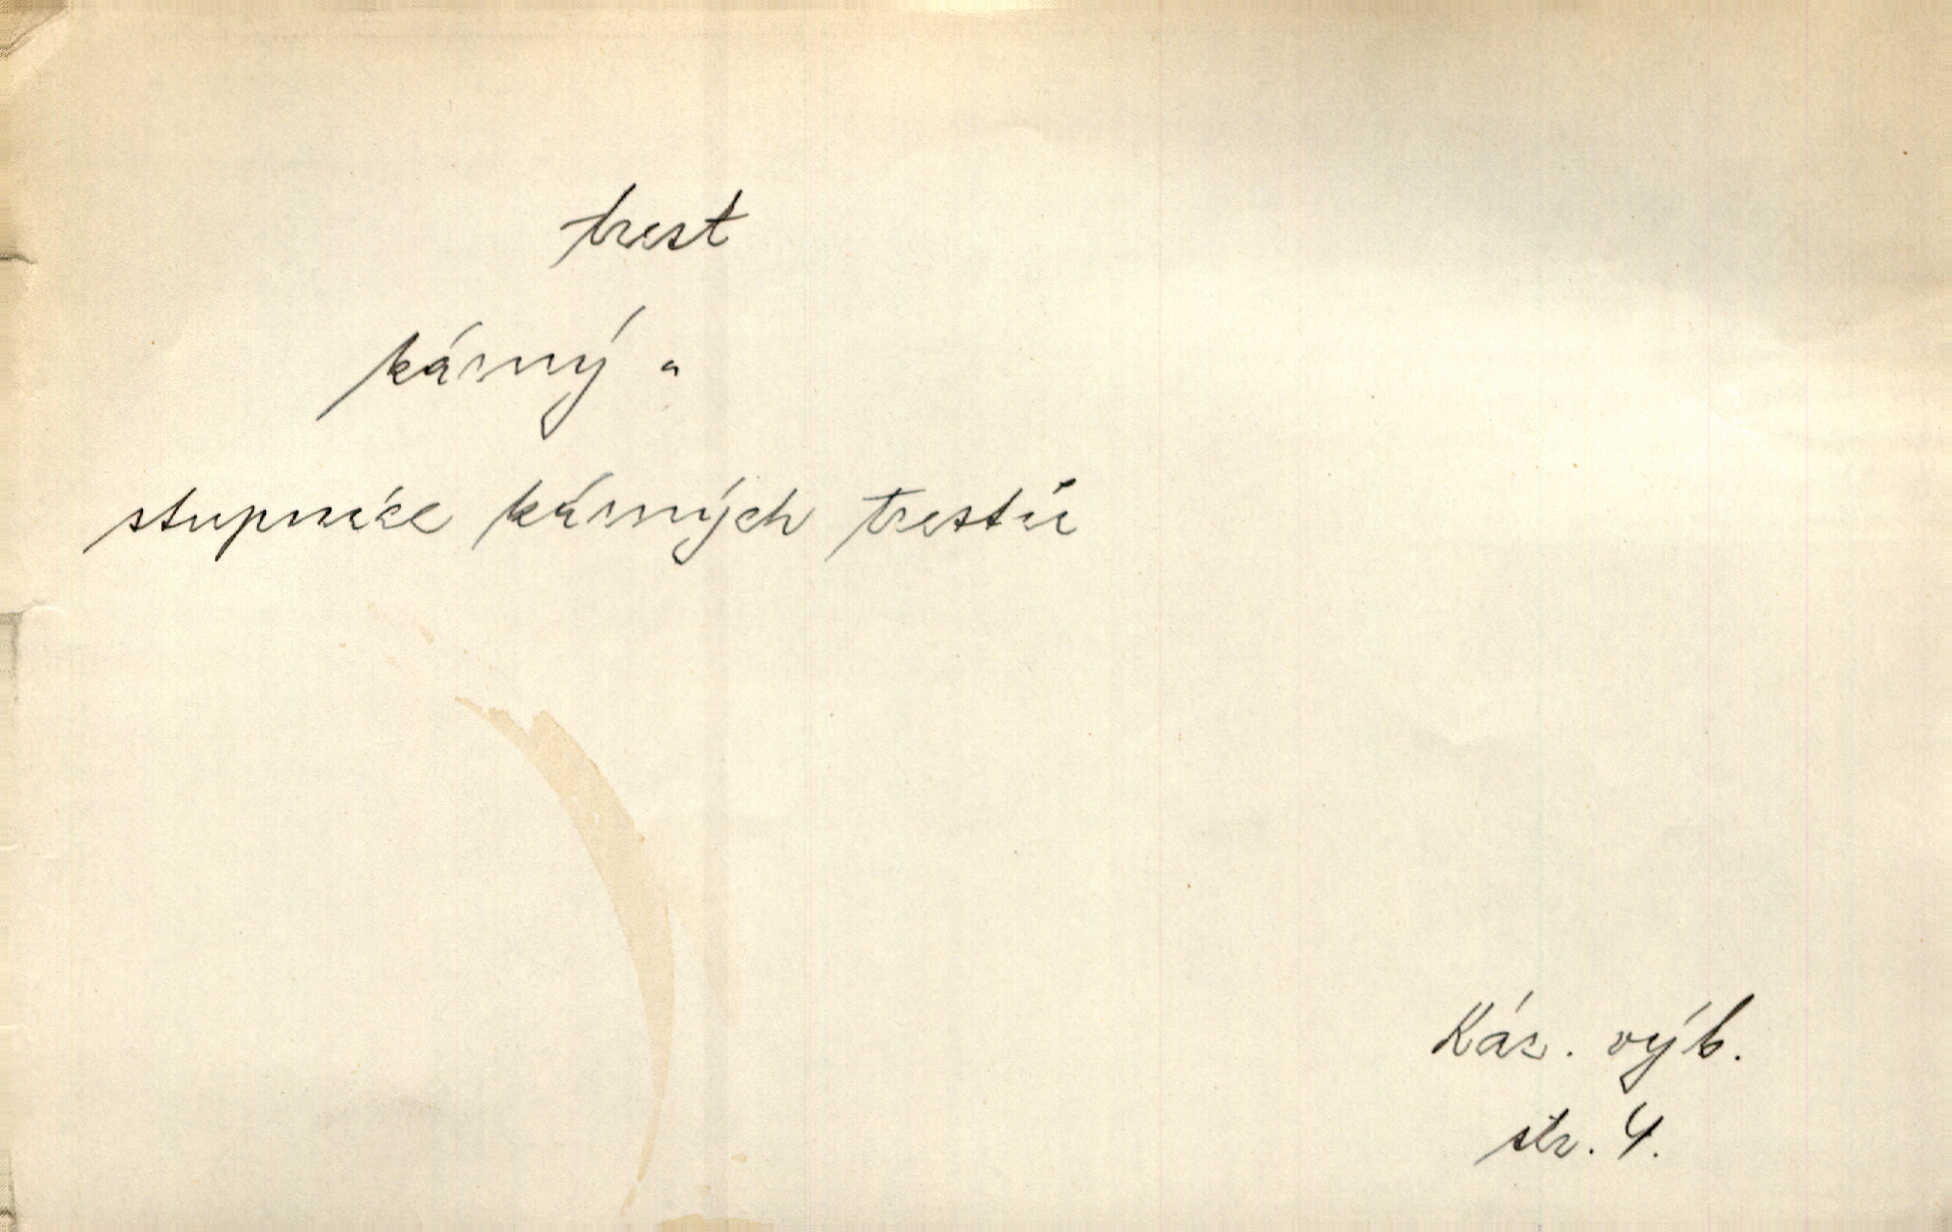 trest
kárný "
stupnice kárných trestů
Kár. výb.
str. 4.